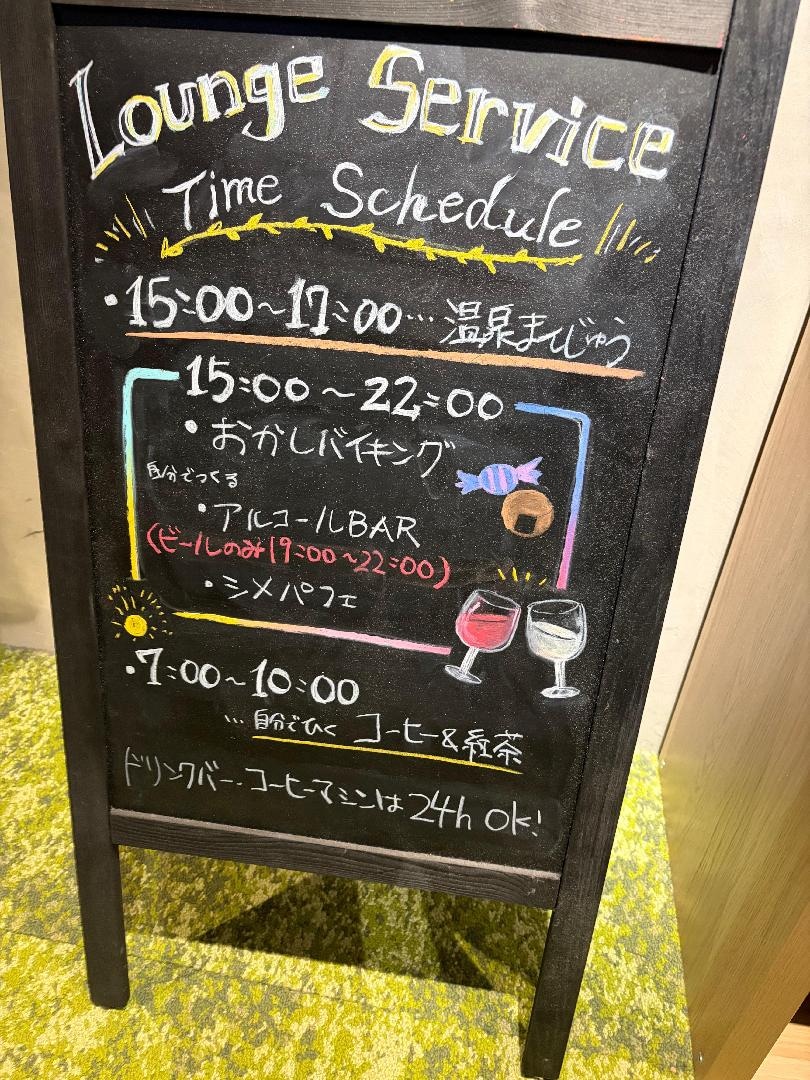 Lounge Service
Time Schedule
・15:00〜17:00…温泉まんじゅう
15:00〜22:00
・おかしバイキング
自分でつくる
・アルコールBAR
(ビールのみ19:00〜22:00)
・シメパフェ
・7:00〜10:00
…自分でひく コーヒー&紅茶
ドリンクバー・コーヒーマシンは24h OK!